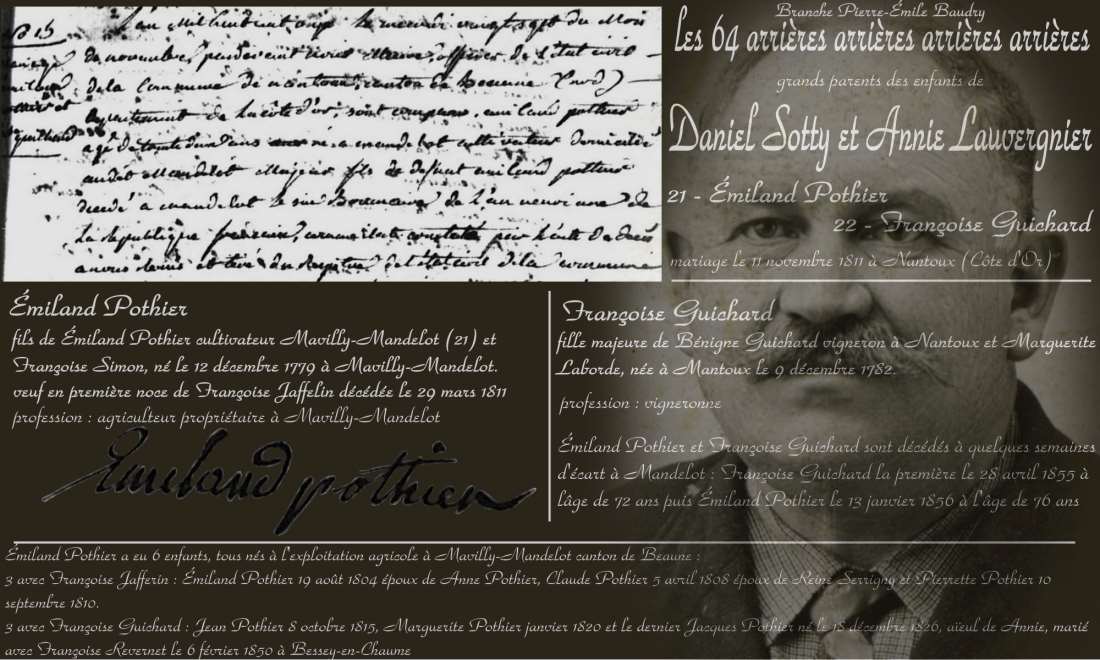 Branche Pierre-Émile Baudry
les 64 arrières arrières arrières arrières
grands parents des enfants de
Daniel Sotty et Annie Lauvergnier
21 - Émiland Pothier
22 - Françoise Guichard
mariage le 11 novembre 1811 à Nantoux (Côte d'Or)
L'an mil huit cent onze le mercredi vingt sept du Mois
de novembre, pardevant nous Maire, officier de l'état civil
de la Commune de nantoux, canton de Beaune (nord)
département de la côte d'or, sont comparus, emiland pothier
agé de trente deux ans né a mandelot cultivateur domicilié
audit Mandelot Majeur fils de defunt emiland pothier
decedé a mandelot le six Brumaire de l'an neuf de
La republique française, comme il est constaté par l'acte de décès
du Registre de l'état civil de la commune
Émiland Pothier
fils de Émiland Pothier cultivateur Mavilly-Mandelot (21) et
Françoise Simon, né le 12 décembre 1779 à Mavilly-Mandelot.
veuf en première noce de Françoise Jaffelin décédée le 29 mars 1811
profession : agriculteur propriétaire à Mavilly-Mandelot
Emiland pothier
Françoise Guichard
fille majeure de Bénigne Guichard vigneron à Nantoux et Marguerite
Laborde, née à Mantoux le 9 décembre 1782.
profession : vigneronne
Émiland Pothier et Françoise Guichard sont décédés à quelques semaines
d'écart à Mandelot : Françoise Guichard la première le 28 avril 1855 à
l'âge de 72 ans puis Émiland Pothier le 13 janvier 1856 à l'âge de 76 ans
Émiland Pothier a eu 6 enfants, tous nés à l'exploitation agricole à Mavilly-Mandelot canton de Beaune :
3 avec Françoise Jafferin : Émiland Pothier 19 août 1804 époux de Anne Pothier, Claude Pothier 5 avril 1808 époux de Reine Serrigny et Pierrette Pothier 10
septembre 1810.
3 avec Françoise Guichard : Jean Pothier 8 octobre 1815, Marguerite Pothier janvier 1820 et le dernier Jacques Pothier né le 18 décembre 1826, aïeul de Annie, marié
avec Françoise Revernet le 6 février 1850 à Bessey-en-Chaume